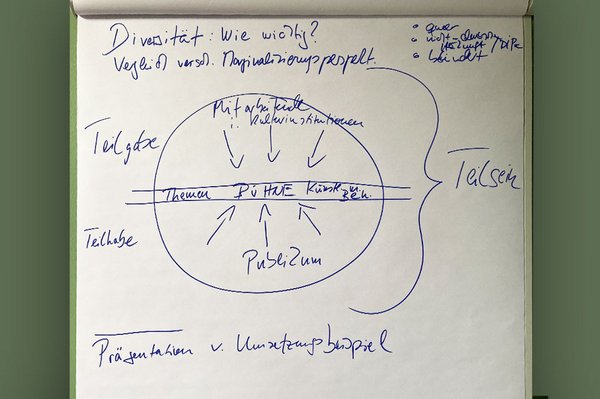 Diversität: Wie wichtig?
Vergleich versch. Marginalisierungsperspekt.
• queer
• nicht-deutsche
Herkunft / BiPoC
•
Mitarbeitende
i. Kulturinstitutionen
Teilgabe
Themen BÜHNE Künstl.
Teilsein
Teilhabe
Publikum
Präsentation v. Umsetzungsbeispiel